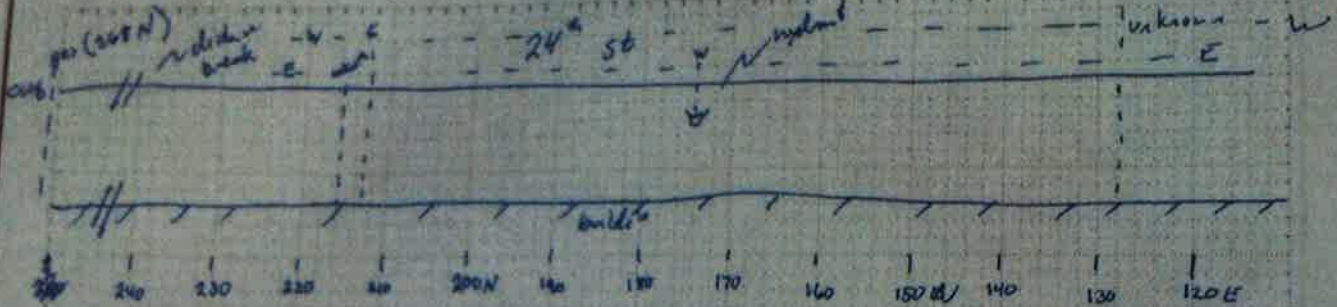 gas (268 N)
distance break - W -
E
24th St
W
hydrant
unknown - W
E
curb
building
240 230 220 210 200N 190 180 170 160 150 140 130 120 E